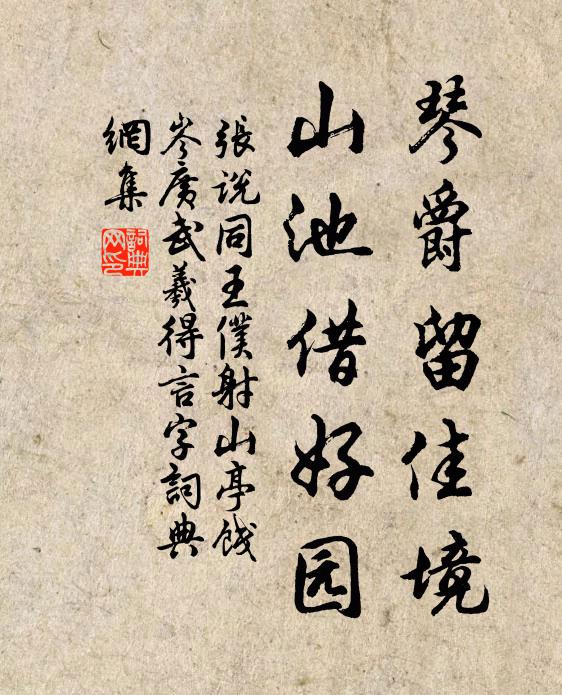 琴爵留佳境
山池借好园
張说同王僕射山亭饯
岑廣武羲得言字詞典
網集
詞典
网印